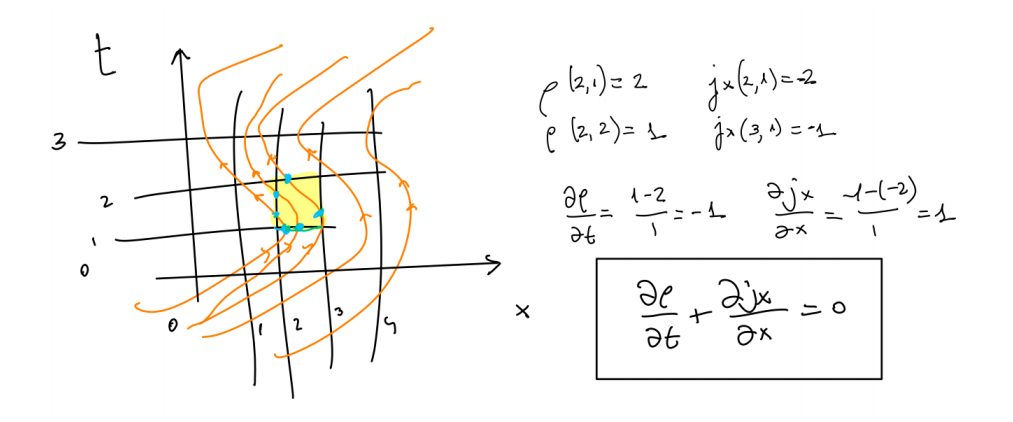 t
3
2
1
0
0 1 2 3 4
x
ρ(2,1)=2 jx(2,1)=-2
ρ(2,2)=1 jx(3,1)=-1
∂ρ/∂t = (1-2)/1 = -1 ∂jx/∂x = (-1-(-2))/1 = 1
∂ρ/∂t + ∂jx/∂x = 0